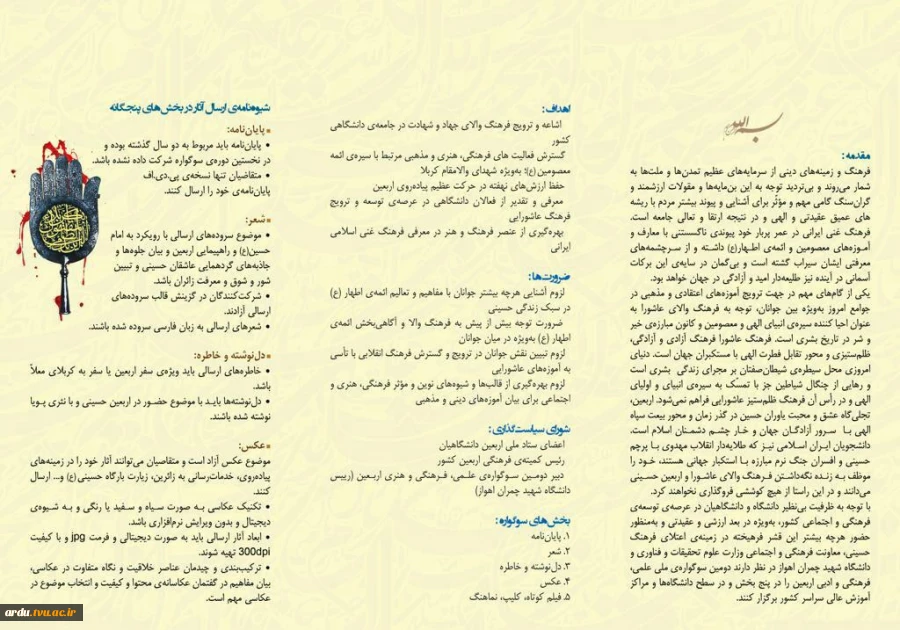 بسم الله
مقدمه:
فرهنگ و زمینه‌های دینی از سرمایه‌های عظیم تمدن‌ها و ملت‌ها به
شمار می‌روند و بی‌تردید توجه به این بن‌مایه‌ها و مقولات ارزشمند و
گران‌سنگ گامی مهم و مؤثر برای آشنایی و پیوند بیشتر مردم با ریشه
های عمیق عقیدتی و الهی و در نتیجه ارتقا و تعالی جامعه است.
فرهنگ غنی ایرانی در عمر پربار خود پیوندی ناگسستنی با معارف و
آموزه‌های معصومین و ائمه‌ی اطهار(ع) داشته و از سرچشمه‌های
معرفتی ایشان سیراب گشته است و بی‌گمان در سایه‌ی این برکات
آسمانی در آینده نیز طلیعه‌دار امید و آزادگی در جهان خواهد بود.
یکی از گام‌های مهم در جهت ترویج آموزه‌های اعتقادی و مذهبی در
جوامع امروز به‌ویژه بین جوانان، توجه به فرهنگ والای عاشورا به
عنوان احیا کننده سیره‌ی انبیای الهی و معصومین و کانون مبارزه‌ی خیر
و شر در تاریخ بشری است. فرهنگ عاشورا فرهنگ آزادی و آزادگی،
ظلم‌ستیزی و محور تقابل فطرت الهی با مستکبران جهان است. دنیای
امروزی محل سیطره‌ی شیطان‌صفتان بر مجرای زندگی بشری است
و رهایی از چنگال شیاطین جز با تمسک به سیره‌ی انبیای و اولیای
الهی و در رأس آن فرهنگ ظلم‌ستیز عاشورایی فراهم نمی‌شود. اربعین،
تجلی‌گاه عشق و محبت یاوران حسین در گذر زمان و محور بیعت سپاه
الهی با سرور آزادگان جهان و خار چشم دشمنان اسلام است.
دانشجویان ایران اسلامی نیز که طلایه‌دار انقلاب مهدوی با پرچم
حسینی و افسران جنگ نرم مبارزه با استکبار جهانی هستند، خود را
موظف به زنده نگه‌داشتن فرهنگ والای عاشورا و اربعین حسینی
می‌دانند و در این راستا از هیچ کوششی فروگذاری نخواهند کرد.
با توجه به ظرفیت بی‌نظیر دانشگاه و دانشگاهیان در عرصه‌ی توسعه‌ی
فرهنگی و اجتماعی کشور، به‌ویژه در بعد ارزشی و عقیدتی و به‌منظور
حضور هرچه بیشتر این قشر فرهیخته در زمینه‌ی اعتلای فرهنگ
حسینی، معاونت فرهنگی و اجتماعی وزارت علوم تحقیقات و فناوری و
دانشگاه شهید چمران اهواز در نظر دارند دومین سوگواره‌ی ملی علمی،
فرهنگی و ادبی اربعین را در پنج بخش و در سطح دانشگاه‌ها و مراکز
آموزش عالی سراسر کشور برگزار کنند.
اهداف:
اشاعه و ترویج فرهنگ والای جهاد و شهادت در جامعه‌ی دانشگاهی
کشور
گسترش فعالیت های فرهنگی، هنری و مذهبی مرتبط با سیره‌ی ائمه
معصومین (ع)؛ به‌ویژه شهدای والامقام کربلا
حفظ ارزش‌های نهفته در حرکت عظیم پیاده‌روی اربعین
معرفی و تقدیر از فعالان دانشگاهی در عرصه‌ی توسعه و ترویج
فرهنگ عاشورایی
بهره‌گیری از عنصر فرهنگ و هنر در معرفی فرهنگ غنی اسلامی
ایرانی
ضرورت‌ها:
لزوم آشنایی هرچه بیشتر جوانان با مفاهیم و تعالیم ائمه‌ی اطهار (ع)
در سبک زندگی حسینی
ضرورت توجه بیش از پیش به فرهنگ والا و آگاهی‌بخش ائمه‌ی
اطهار (ع) به‌ویژه در میان جوانان
لزوم تبیین نقش جوانان در ترویج و گسترش فرهنگ انقلابی با تأسی
به آموزه‌های عاشورایی
لزوم بهره‌گیری از قالب‌ها و شیوه‌های نوین و مؤثر فرهنگی، هنری و
اجتماعی برای بیان آموزه‌های دینی و مذهبی
شورای سیاست‌گذاری:
اعضای ستاد ملی اربعین دانشگاهیان
رئیس کمیته‌ی فرهنگی اربعین کشور
دبیر دومین سوگواره‌ی علمی، فرهنگی و هنری اربعین (رییس
دانشگاه شهید چمران اهواز)
بخش‌های سوگواره:
۱. پایان‌نامه
۲. شعر
۳. دل‌نوشته و خاطره
۴. عکس
۵. فیلم کوتاه، کلیپ، نماهنگ
شیوه‌نامه‌ی ارسال آثار در بخش‌های پنجگانه
▪ پایان‌نامه:
• پایان‌نامه باید مربوط به دو سال گذشته بوده و
در نخستین دوره‌ی سوگواره شرکت داده نشده باشد.
• متقاضیان تنها نسخه‌ی پی.دی.اف
پایان‌نامه‌ی خود را ارسال کنند.
▪ شعر:
• موضوع سروده‌های ارسالی با رویکرد به امام
حسین(ع) و راهپیمایی اربعین و بیان جلوه‌ها و
جاذبه‌های گردهمایی عاشقان حسینی و تبیین
شور و شوق و معرفت زائران باشد.
• شرکت‌کنندگان در گزینش قالب سروده‌های
ارسالی آزادند.
• شعرهای ارسالی به زبان فارسی سروده شده باشند.
▪ دل‌نوشته و خاطره:
• خاطره‌های ارسالی باید ویژه‌ی سفر اربعین یا سفر به کربلای معلاّ
باشد.
• دل‌نوشته‌ها باید با موضوع حضور در اربعین حسینی و با نثری پویا
نوشته شده باشند.
▪ عکس:
موضوع عکس آزاد است و متقاضیان می‌توانند آثار خود را در زمینه‌های
پیاده‌روی، خدمات‌رسانی به زائرین، زیارت بارگاه حسینی (ع) و... ارسال
کنند.
• تکنیک عکاسی به صورت سیاه و سفید یا رنگی و به شیوه‌ی
دیجیتال و بدون ویرایش نرم‌افزاری باشد.
• ابعاد آثار ارسالی باید به صورت دیجیتالی و فرمت jpg و با کیفیت
300dpi تهیه شوند.
• ترکیب‌بندی و چیدمان عناصر خلاقیت و نگاه متفاوت در عکاسی،
بیان مفاهیم در گفتمان عکاسانه‌ی محتوا و کیفیت و انتخاب موضوع در
عکاسی مهم است.
ardu.tvu.ac.ir